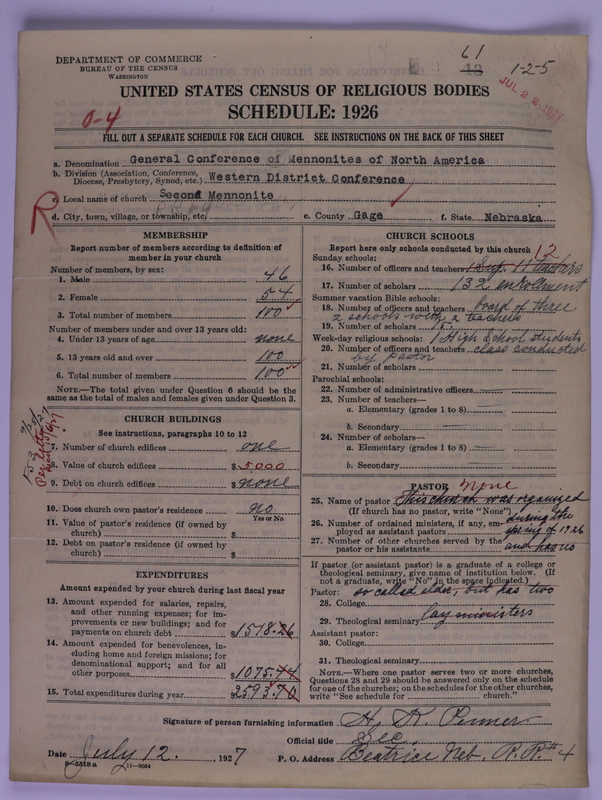 61
13
1-2-5
JUL 22 1927
DEPARTMENT OF COMMERCE
BUREAU OF THE CENSUS
WASHINGTON
UNITED STATES CENSUS OF RELIGIOUS BODIES
SCHEDULE: 1926
0-4
FILL OUT A SEPARATE SCHEDULE FOR EACH CHURCH. SEE INSTRUCTIONS ON THE BACK OF THIS SHEET
a. Denomination General Conference of Mennonites of North America
b. Division (Association, Conference, Diocese, Presbytery, Synod, etc.) Western District Conference
c. Local name of church Second Mennonite
R
d. City, town, village, or township, etc.
e. County Gage
f. State Nebraska
MEMBERSHIP
Report number of members according to definition of
member in your church
Number of members, by sex:
1. Male 46
2. Female 54
3. Total number of members 100
Number of members under and over 13 years old:
4. Under 13 years of age none
5. 13 years old and over 100
6. Total number of members 100
NOTE.—The total given under Question 6 should be the
same as the total of males and females given under Question 3.
CHURCH BUILDINGS
See instructions, paragraphs 10 to 12
7. Number of church edifices one
8. Value of church edifices $5,000
9. Debt on church edifices $none
10. Does church own pastor's residence no
Yes or No
11. Value of pastor's residence (if owned by
church) $
12. Debt on pastor's residence (if owned by
church) $
EXPENDITURES
Amount expended by your church during last fiscal year
13. Amount expended for salaries, repairs,
and other running expenses; for im-
provements or new buildings; and for
payments on church debt $1518.26
14. Amount expended for benevolences, in-
cluding home and foreign missions; for
denominational support; and for all
other purposes $1075.44
15. Total expenditures during year 2593.70
CHURCH SCHOOLS
Report here only schools conducted by this church
Sunday schools:
12
16. Number of officers and teachers 1 Sup. 11 teachers
17. Number of scholars 132 enrollment
Summer vacation Bible schools:
18. Number of officers and teachers board of three
2 schools with 2 teachers
19. Number of scholars
Week-day religious schools: 1 High School students
20. Number of officers and teachers class conducted
by pastor
21. Number of scholars
Parochial schools:
22. Number of administrative officers
23. Number of teachers—
a. Elementary (grades 1 to 8)
b. Secondary
24. Number of scholars—
a. Elementary (grades 1 to 8)
b. Secondary
PASTOR none
25. Name of pastor This church was organized
(If church has no pastor, write "None") during the
26. Number of ordained ministers, if any, em-
ployed as assistant pastors spring of 1926
27. Number of other churches served by the
pastor or his assistants and has no
If pastor (or assistant pastor) is a graduate of a college or
theological seminary, give name of institution below. (If
not a graduate, write "No" in the space indicated.)
Pastor: so called elder, but has two
28. College
lay ministers
29. Theological seminary
Assistant pastor:
30. College
31. Theological seminary
NOTE.—Where one pastor serves two or more churches,
Questions 28 and 29 should be answered only on the schedule
for one of the churches; on the schedules for the other churches,
write "See schedule for church."
Signature of person furnishing information
Official title Sec.
Date July 12, 1927
P. O. Address Beatrice Neb. R.R.#4
8-5318a
11-9084